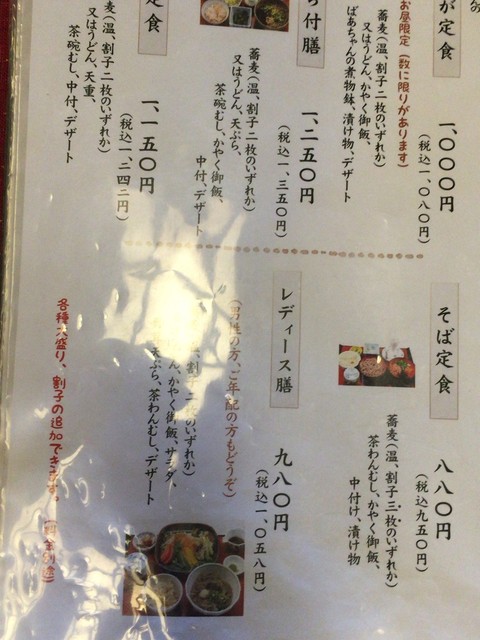 が定食
お昼限定(数に限りがあります)
蕎麦(温、割子二枚のいずれか)
又はうどん、かやく御飯、
ばあちゃんの煮物鉢、漬け物、デザート
一、〇〇〇円
(税込一、〇八〇円)
付膳
蕎麦(温、割子二枚のいずれか)
又はうどん、天ぷら、
茶碗むし、かやく御飯、
中付、デザート
一、二五〇円
(税込一、三五〇円)
定食
蕎麦(温、割子二枚のいずれか)
又はうどん、天重、
茶碗むし、中付、デザート
一、一五〇円
(税込一、二四二円)
そば定食
蕎麦(温、割子三枚のいずれか)
茶わんむし、かやく御飯、
中付け、漬け物
八八〇円
(税込九五〇円)
レディース膳
(男性の方、ご年配の方もどうぞ)
割子二枚のいずれか)
かやく御飯、サラダ、
天ぷら、茶わんむし、デザート
九八〇円
(税込一、〇五八円)
各種大盛り、割子の追加できます。